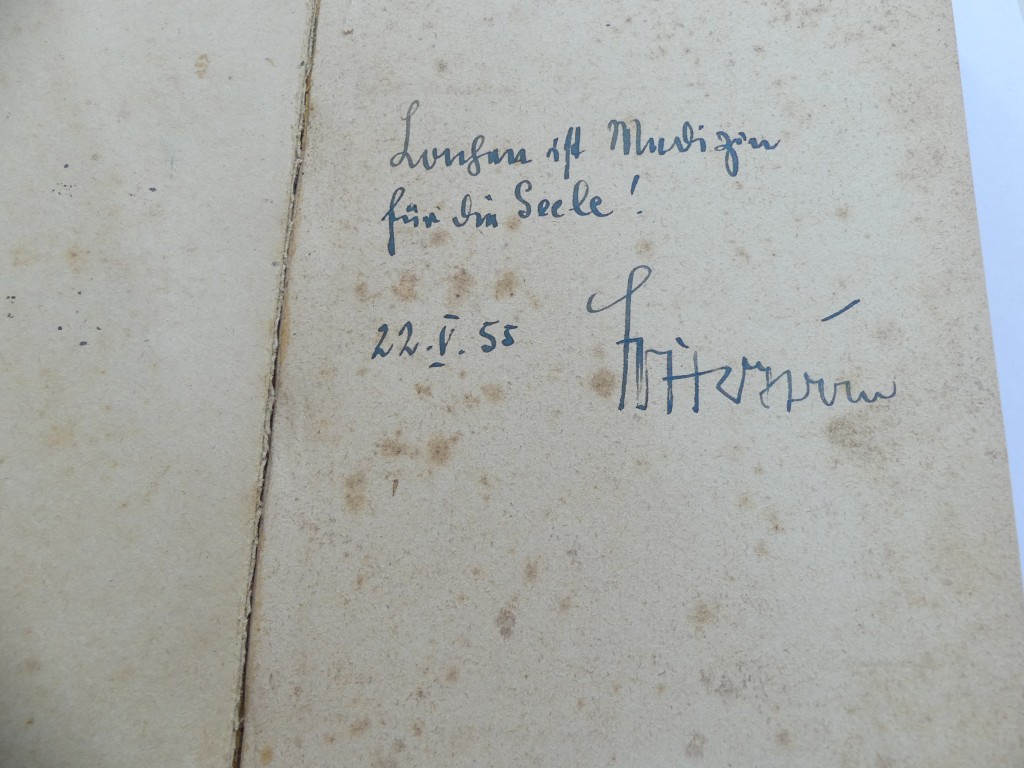 Lachen ist Medizin
für die Seele!
22.V.55